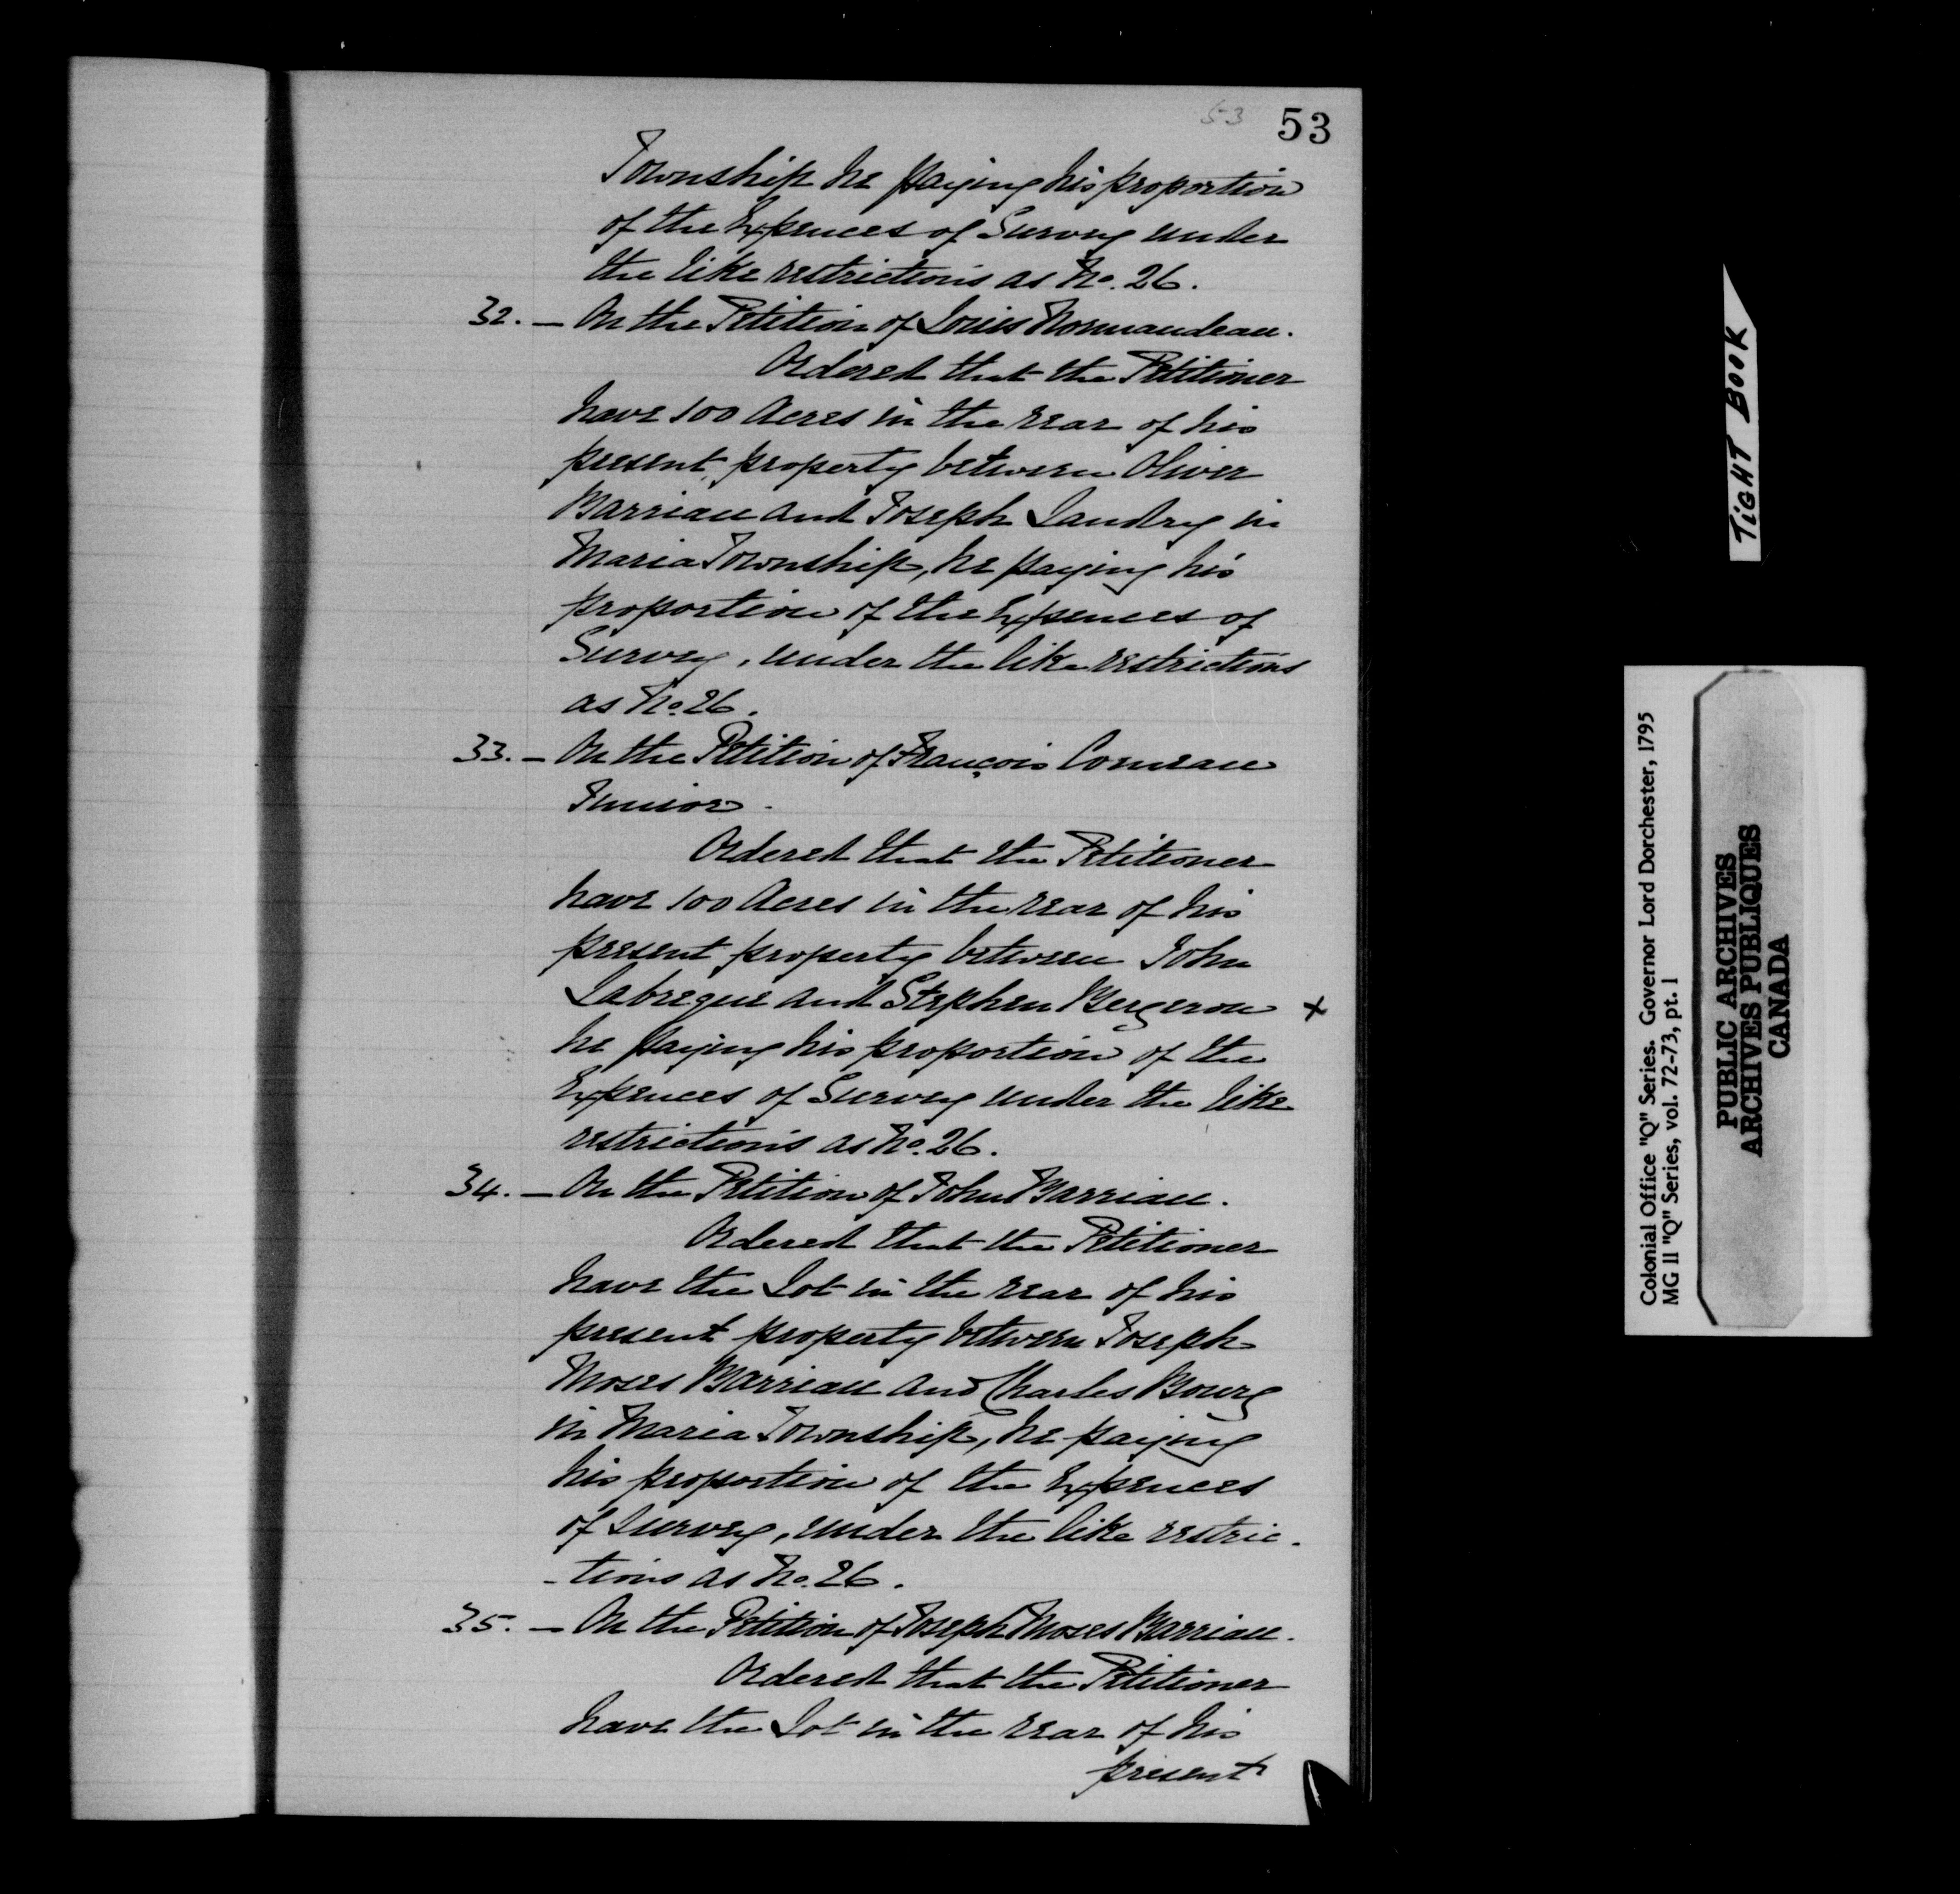 53 53
Township he paying his proportion
of the Expences of Survey under
the like restrictions as No. 26.
32. — On the Petition of Louis Normandeau.
Ordered that the Petitioner
have 100 Acres in the rear of his
present property between Oliver
Barriau and Joseph Landry in
Maria Township, he paying his
proportion of the Expences of
Survey, under the like restrictions
as No. 26.
33. — On the Petition of François Comeau
Junior.
Ordered that the Petitioner
have 100 Acres in the rear of his
present property between John
Labreque and Stephen Bergeron x
he paying his proportion of the
Expences of Survey under the like
restrictions as No. 26.
34. — On the Petition of John Barriau.
Ordered that the Petitioner
have the Lot in the rear of his
present property between Joseph
Moses Barriau and Charles Bourg
in Maria Township, he paying
his proportion of the Expences
of Survey, under the like restric-
-tions as No. 26.
35. — On the Petition of Joseph Moses Barriau.
Ordered that the Petitioner
have the Lot in the rear of his
present
TIGHT BOOK
Colonial Office "Q" Series. Governor Lord Dorchester, 1795
MG 11 "Q" Series, vol. 72-73, pt. 1
PUBLIC ARCHIVES
ARCHIVES PUBLIQUES
CANADA